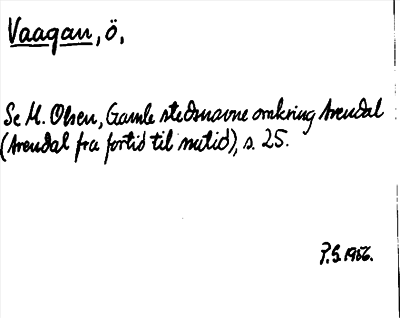 Vaagan, ö,
Se M. Olsen, Gamle stedsnavne omkring Arendal
(Arendal fra fortid til nutid), s. 25.
P.S. 1956.